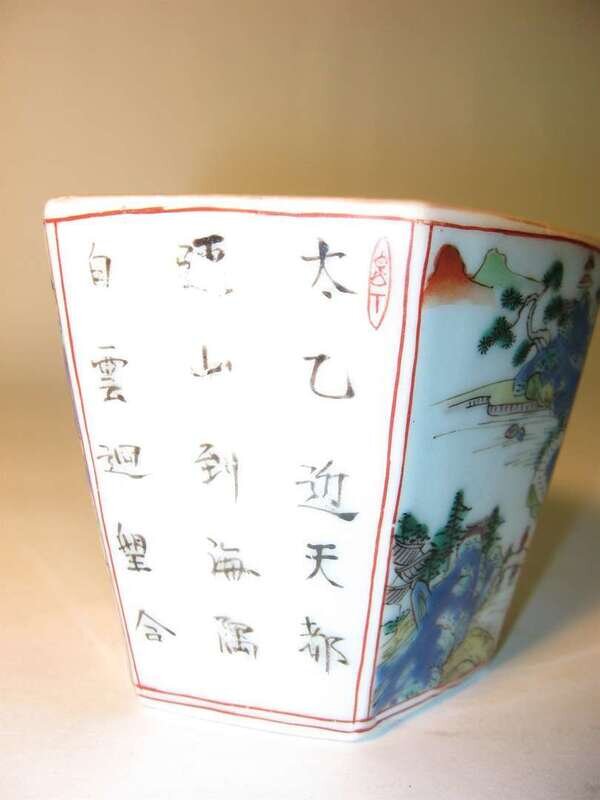 太乙近天都
連山到海隅
自雲迴望合